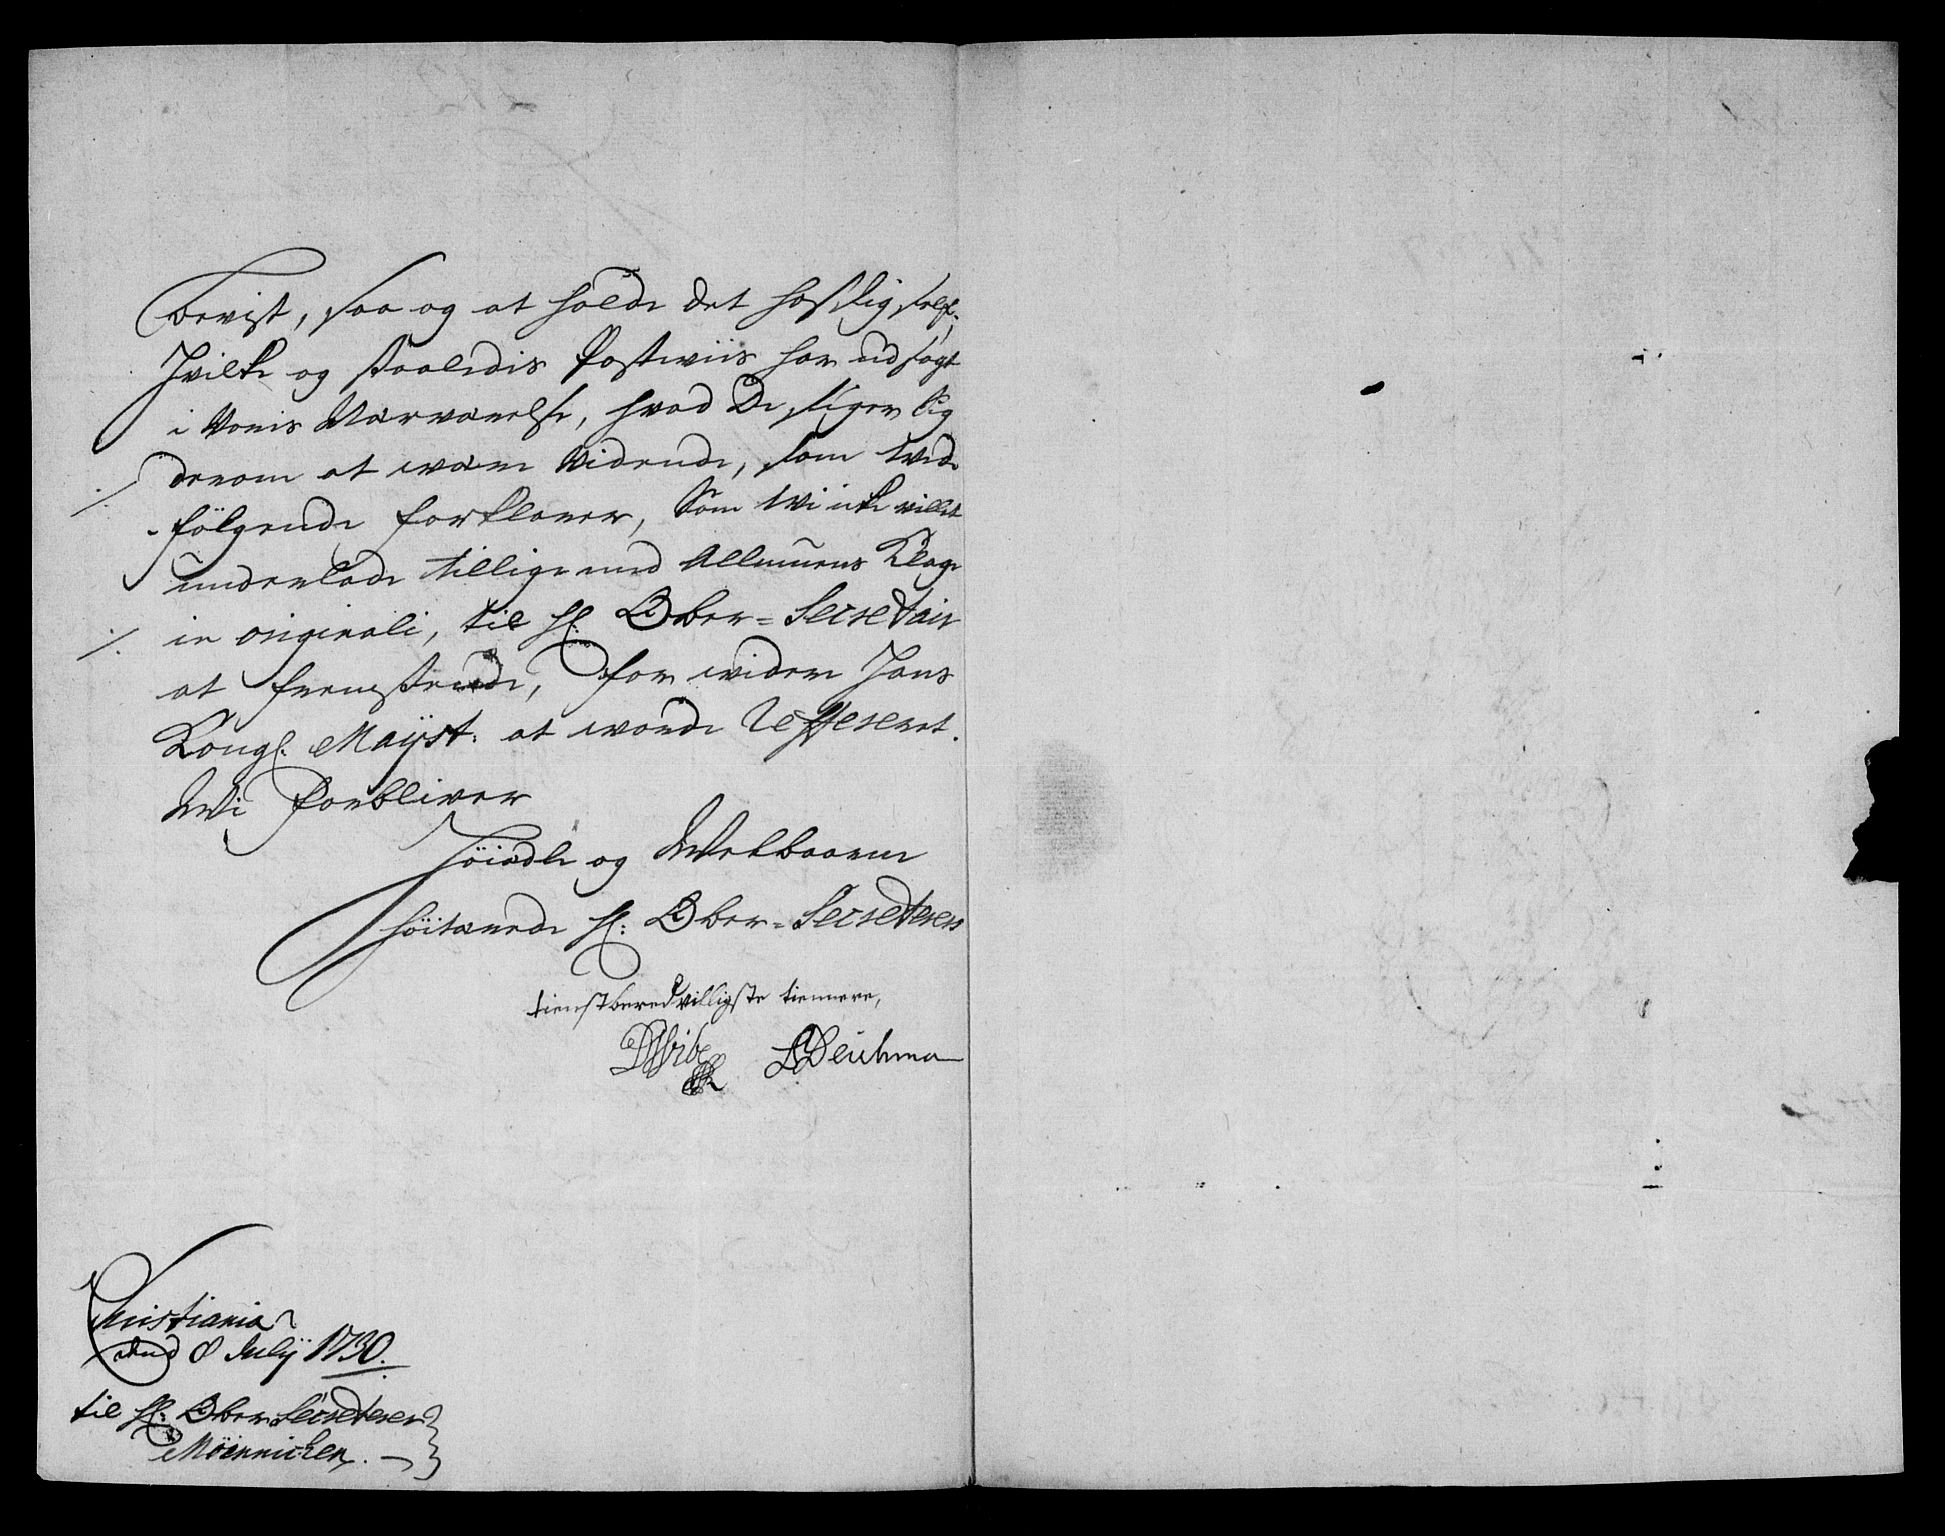 bevist, saa og at holde det hos sig self.
Hvilke og saaledis Postwiis har udsagt
i Voris Nærværelse, hvad De siger sig
derom at være Vidende, som ved
følgende forklarer, Som Wi icke villet
underlade tillige med Allmuens Klage
in originali, til Hr: Ober=Secretair
at fremsende, for videre Hans
Kongl. Mayst: at vorde Refereret.
Wi Forbliver
Höiædle og Welbaarne
höitærede Hr: Ober=Secreterers
tienstberedvilligste tiennere,
DVibe BDeichman
Christiania
dend 8 July 1730.
til Hr: Ober Secreterer
Möinnichen.